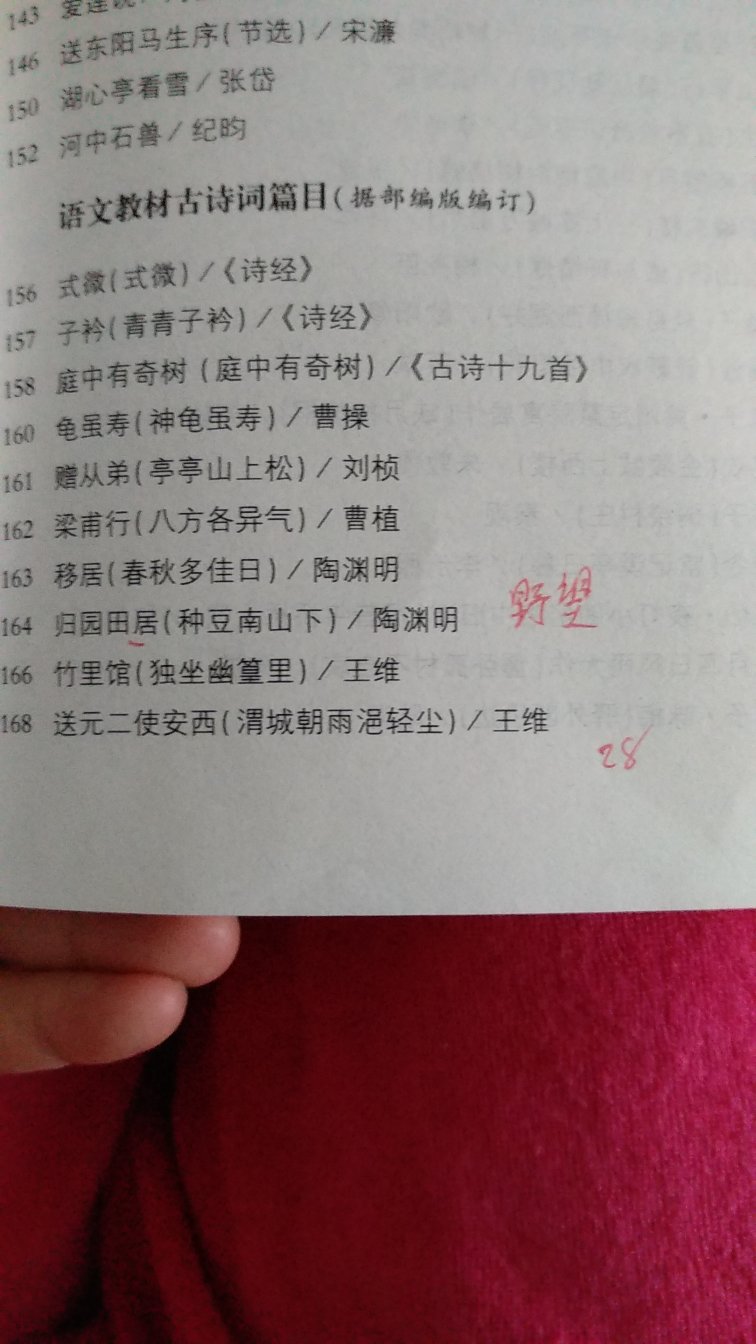 143 爱莲说
146 送东阳马生序(节选) / 宋濂
150 湖心亭看雪 / 张岱
152 河中石兽 / 纪昀
语文教材古诗词篇目(据部编版编订)
156 式微(式微) /《诗经》
157 子衿(青青子衿) /《诗经》
158 庭中有奇树(庭中有奇树) /《古诗十九首》
160 龟虽寿(神龟虽寿) / 曹操
161 赠从弟(亭亭山上松) / 刘桢
162 梁甫行(八方各异气) / 曹植
163 移居(春秋多佳日) / 陶渊明
164 归园田居(种豆南山下) / 陶渊明 野望
166 竹里馆(独坐幽篁里) / 王维
168 送元二使安西(渭城朝雨浥轻尘) / 王维
28